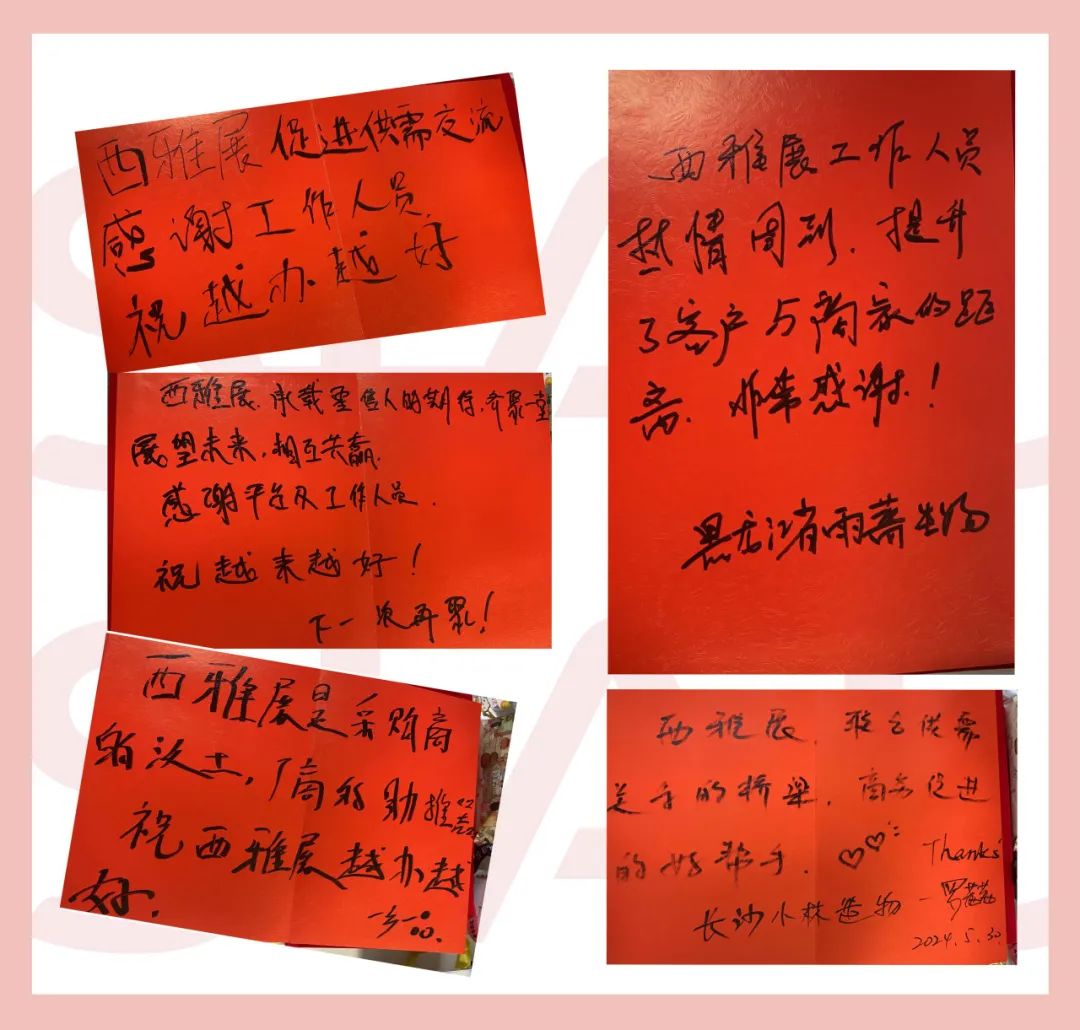 西雅展 促进供需交流
感谢工作人员
祝越办越好
西雅展.承载零售人的期待,齐聚一堂
展望未来,相互共赢.
感谢平台及工作人员.
祝越来越好!
下一次再聚!
西雅展是采购商
的沃土,厂商的助推器
祝西雅展越办越
好.
西雅展工作人员
热情周到.提升
了客户与商家的距
离.非常感谢!
黑龙江省雨蕎生物
西雅展,联合供需
的桥梁,商务促进
的好帮手.
Thanks
长沙小林造物
2024.5.30